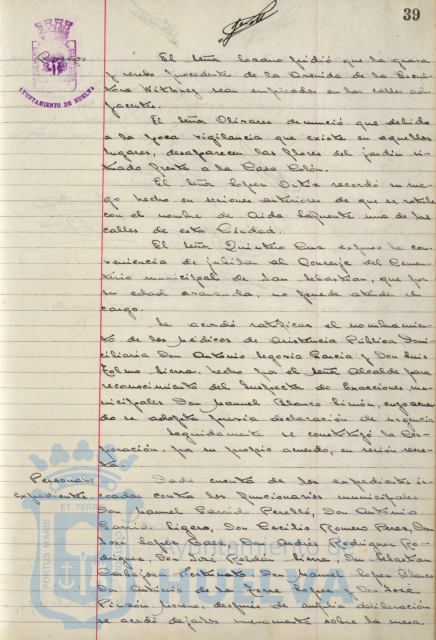 39
AYUNTAMIENTO DE HUELVA
El Señor Lozano pidió que la grava
y recebo procedente de la Avenida de la Escul-
tora Withney sean empleados en las calles ad-
yacentes.
El Señor Olivares denunció que debido
a la poca vigilancia que existe en aquellos
lugares, desaparecen las flores del jardín si-
tuado frente a la Casa Colón.
El Señor López Ortiz recordó su rue-
go hecho en sesiones anteriores de que se rotule
con el nombre de Aida Lafuente una de las
calles de esta Ciudad.
El Señor Quintero expuso la con-
veniencia de jubilar al Conserje del Cemen-
terio municipal de San Sebastián, que por
su edad avanzada, no puede atender el
cargo.
Se acordó ratificar el nombramien-
to de los Médicos de Asistencia Pública Domi-
ciliaria Don Antonio Segovia García y Don Luis
Tolmo Sierra, hecho por el Señor Alcalde para
reconocimiento del Inspector de Exacciones mu-
nicipales Don Manuel Blanco Simón, cuyo acuer-
do se adopta previa declaración de urgencia
Seguidamente se constituyó la Cor-
poración, por su propio acuerdo, en sesión secre-
ta.
Personal:
expedientes.
Dada cuenta de los expedientes in-
coados contra los funcionarios municipales
Don Manuel Garrido Perelló, Don Antonio
Garrido Ligero, Don Cecilio Romero Pérez, Don
José López Jase, Don Andrés Rodríguez Ro-
dríguez, Don José Roldán, Don Sebastián
Carbajosa Fortunato, Don Manuel López Blanco
Don Antonio de la Torre López y Don José
Pinzón Moreno, después de amplia deliberación
se acordó dejarlos nuevamente sobre la mesa
PORTUS MARIS
ET TERR
Ayuntamiento de
HUELVA